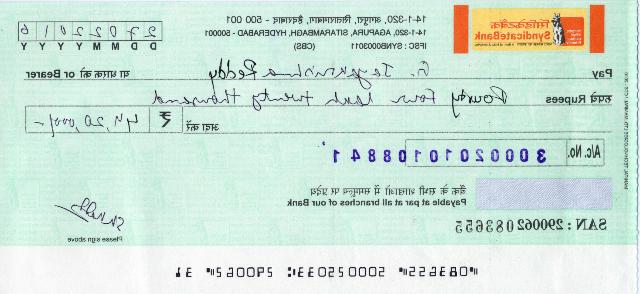 सिंडिकेटबैंक
SyndicateBank
14-1-320, आगापुरा, सितारामबाग, हैदराबाद - 500 001
14-1-320/A, AGAPURA, SITARAMBAGH, HYDERABAD - 500001
IFSC : SYNB0003011 (CBS)
27022016
D D M M Y Y Y Y
Pay G. Jayakrishna Reddy या धारक को or Bearer
रुपये Rupees Fourty Four lakh twenty thousand
अदा करें ₹ 44,20,000/-
A/c. No. 30002010108841
बैंक के सभी शाखाओं में सममूल्य पर प्रदेय
Payable at par at all branches of our Bank
SAN : 290062083655
Please sign above
⑈083655⑈ 500025033⑆ 290062⑈ 31